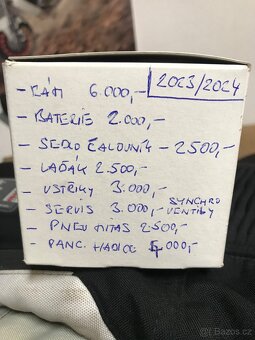 2023/2024
- RÁM 6.000,-
- BATERIE 2.000,-
- SEDLO ČALOUNÍK - 2500,-
- LAĎÁK 2.500,-
- VSTŘIKY 3.000,-
- SERVIS 3.000,- SYNCHRO
VENTILY
- PNEU MITAS 2.500,-
- PANC. HADICE 4000,-
Bazos.cz